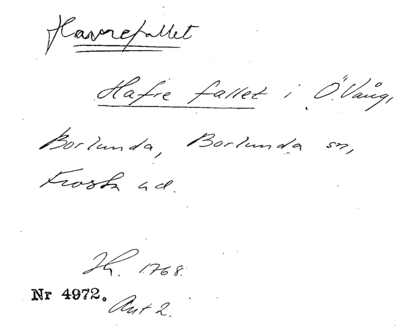 Havrefallet
Hafre fallet i Ö. Vång,
Borlunda, Borlunda sn,
Frosta hd.
Jh. 1768.
Nr 4972.
Akt 2.